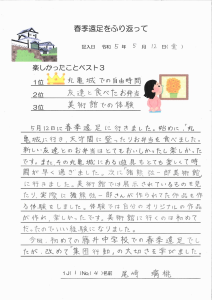 春季遠足をふり返って
記入日 令和 5年 5月 12日(金)
楽しかったことベスト3
1位 丸亀城での自由時間
2位 友達と食べたお弁当
3位 美術館での体験
5月12日に春季遠足に行きました。始めに、丸
亀城に行き、天守閣に登ったりお弁当を食べました。
新しい友達とのお弁当はとてもおいしかったし楽しかった
です。また、今の丸亀城にある遊具もとても楽しくて時間
が早く過ぎました。次に猪熊弦一郎美術館
に行きました。美術館では展示されているものを見
たり、実際に猪熊弦一郎さんが作られてた作品を作
る体験をしました。体験では自分のオリジナルの作品
が作れ、楽しかったです。美術館に行くのは初めて
だったのでいい経験になりました。
今回、初めての藤井中学校での春季遠足でした
が、改めて集団行動の大切さを学びました。
1年1組(No14)名前